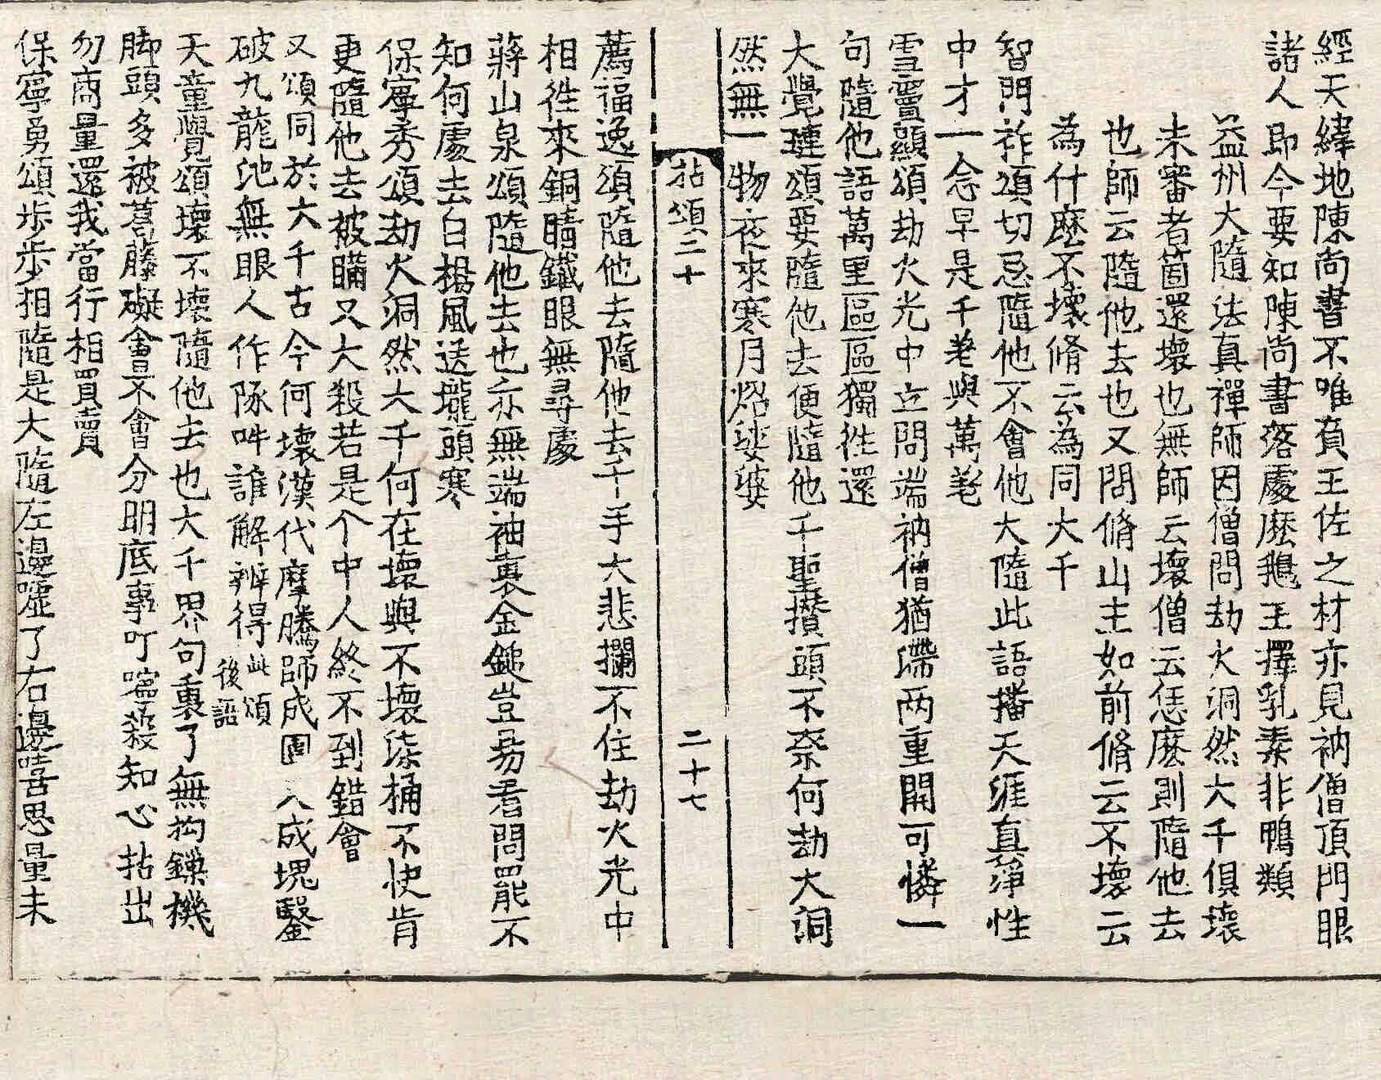 經天緯地陳尚書不唯負王佐之材亦見衲僧頂門眼
諸人即今要知陳尚書落處麽鵝王擇乳素非鴨類
益州大隨法真禪師因僧問劫火洞然大千俱壞
未審者箇還壞也無師云壞僧云恁麽則隨他去
也師云隨他去也又問脩山主如前脩云不壞云
為什麽不壞脩云為同大千
智門祚頌切忌隨他不會他大隨此語播天涯真淨性
中才一念早是千差與萬差
雪竇顯頌劫火光中立問端衲僧猶滯两重関可憐一
句隨他語萬里區區獨徃還
大覺璉頌要隨他去便隨他千聖攢頭不奈何劫火洞
然無一物夜來寒月炤娑婆
拈頌二十
二十七
薦福逸頌隨他去隨他去千手大悲攔不住劫火光中
相徃來銅睛鐵眼無尋處
蔣山泉頌隨他去也亦無端袖裏金鎚豈易看問罷不
知何處去白楊風送壠頭寒
保寧秀頌劫火洞然大千何在壞與不壞柒桶不快肯
更隨他去被瞞又大殺若是个中人終不到錯會
又頌同於大千古今何壞漢代摩騰師成圖入成塊鑿
破九龍池無眼人作隊吽誰解辨得此頌後語
天童覺頌壞不壞隨他去也大千界句裏了無拘鏁機
脚頭多被葛藤礙會不會分明底事叮嚀殺知心拈出
勿商量還我當行相買賣
保寧勇頌歩歩相隨是大隨左邊噓了右邊嘻思量未